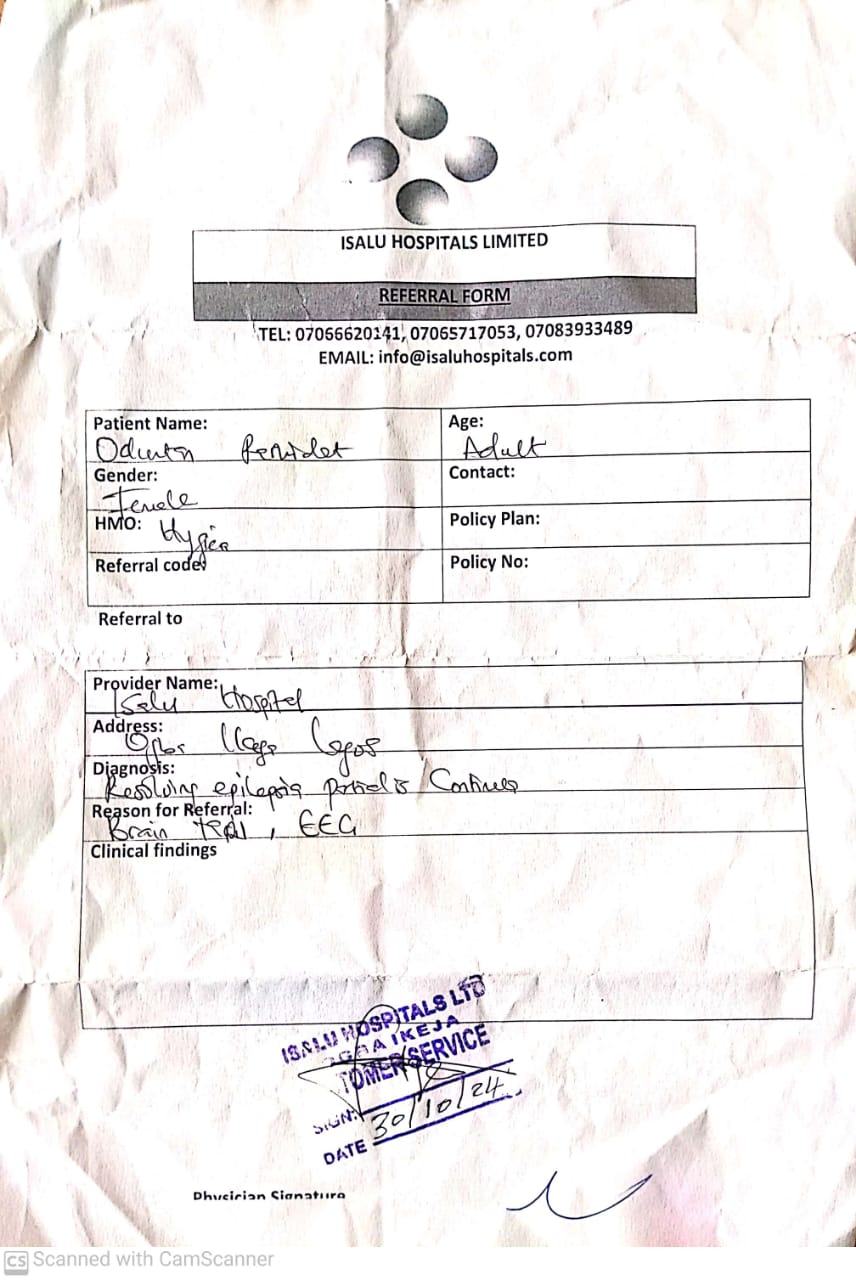 ISALU HOSPITALS LIMITED
REFERRAL FORM
TEL: 07066620141, 07065717053, 07083933489
EMAIL: info@isaluhospitals.com
Patient Name:
Age:
Adult
Gender:
Female
Contact:
HMO: Hygiea
Policy Plan:
Referral code:
Policy No:
Referral to
Provider Name:
Isalu Hospital
Address:
Lagos
Diagnosis:
Resolving epilepsia partialis Continua
Reason for Referral:
Brain , EEG
Clinical findings
ISALU HOSPITALS LTD
IKEJA
TOMER SERVICE
SIGN:
DATE 30/10/24
Physician Signature
CS Scanned with CamScanner